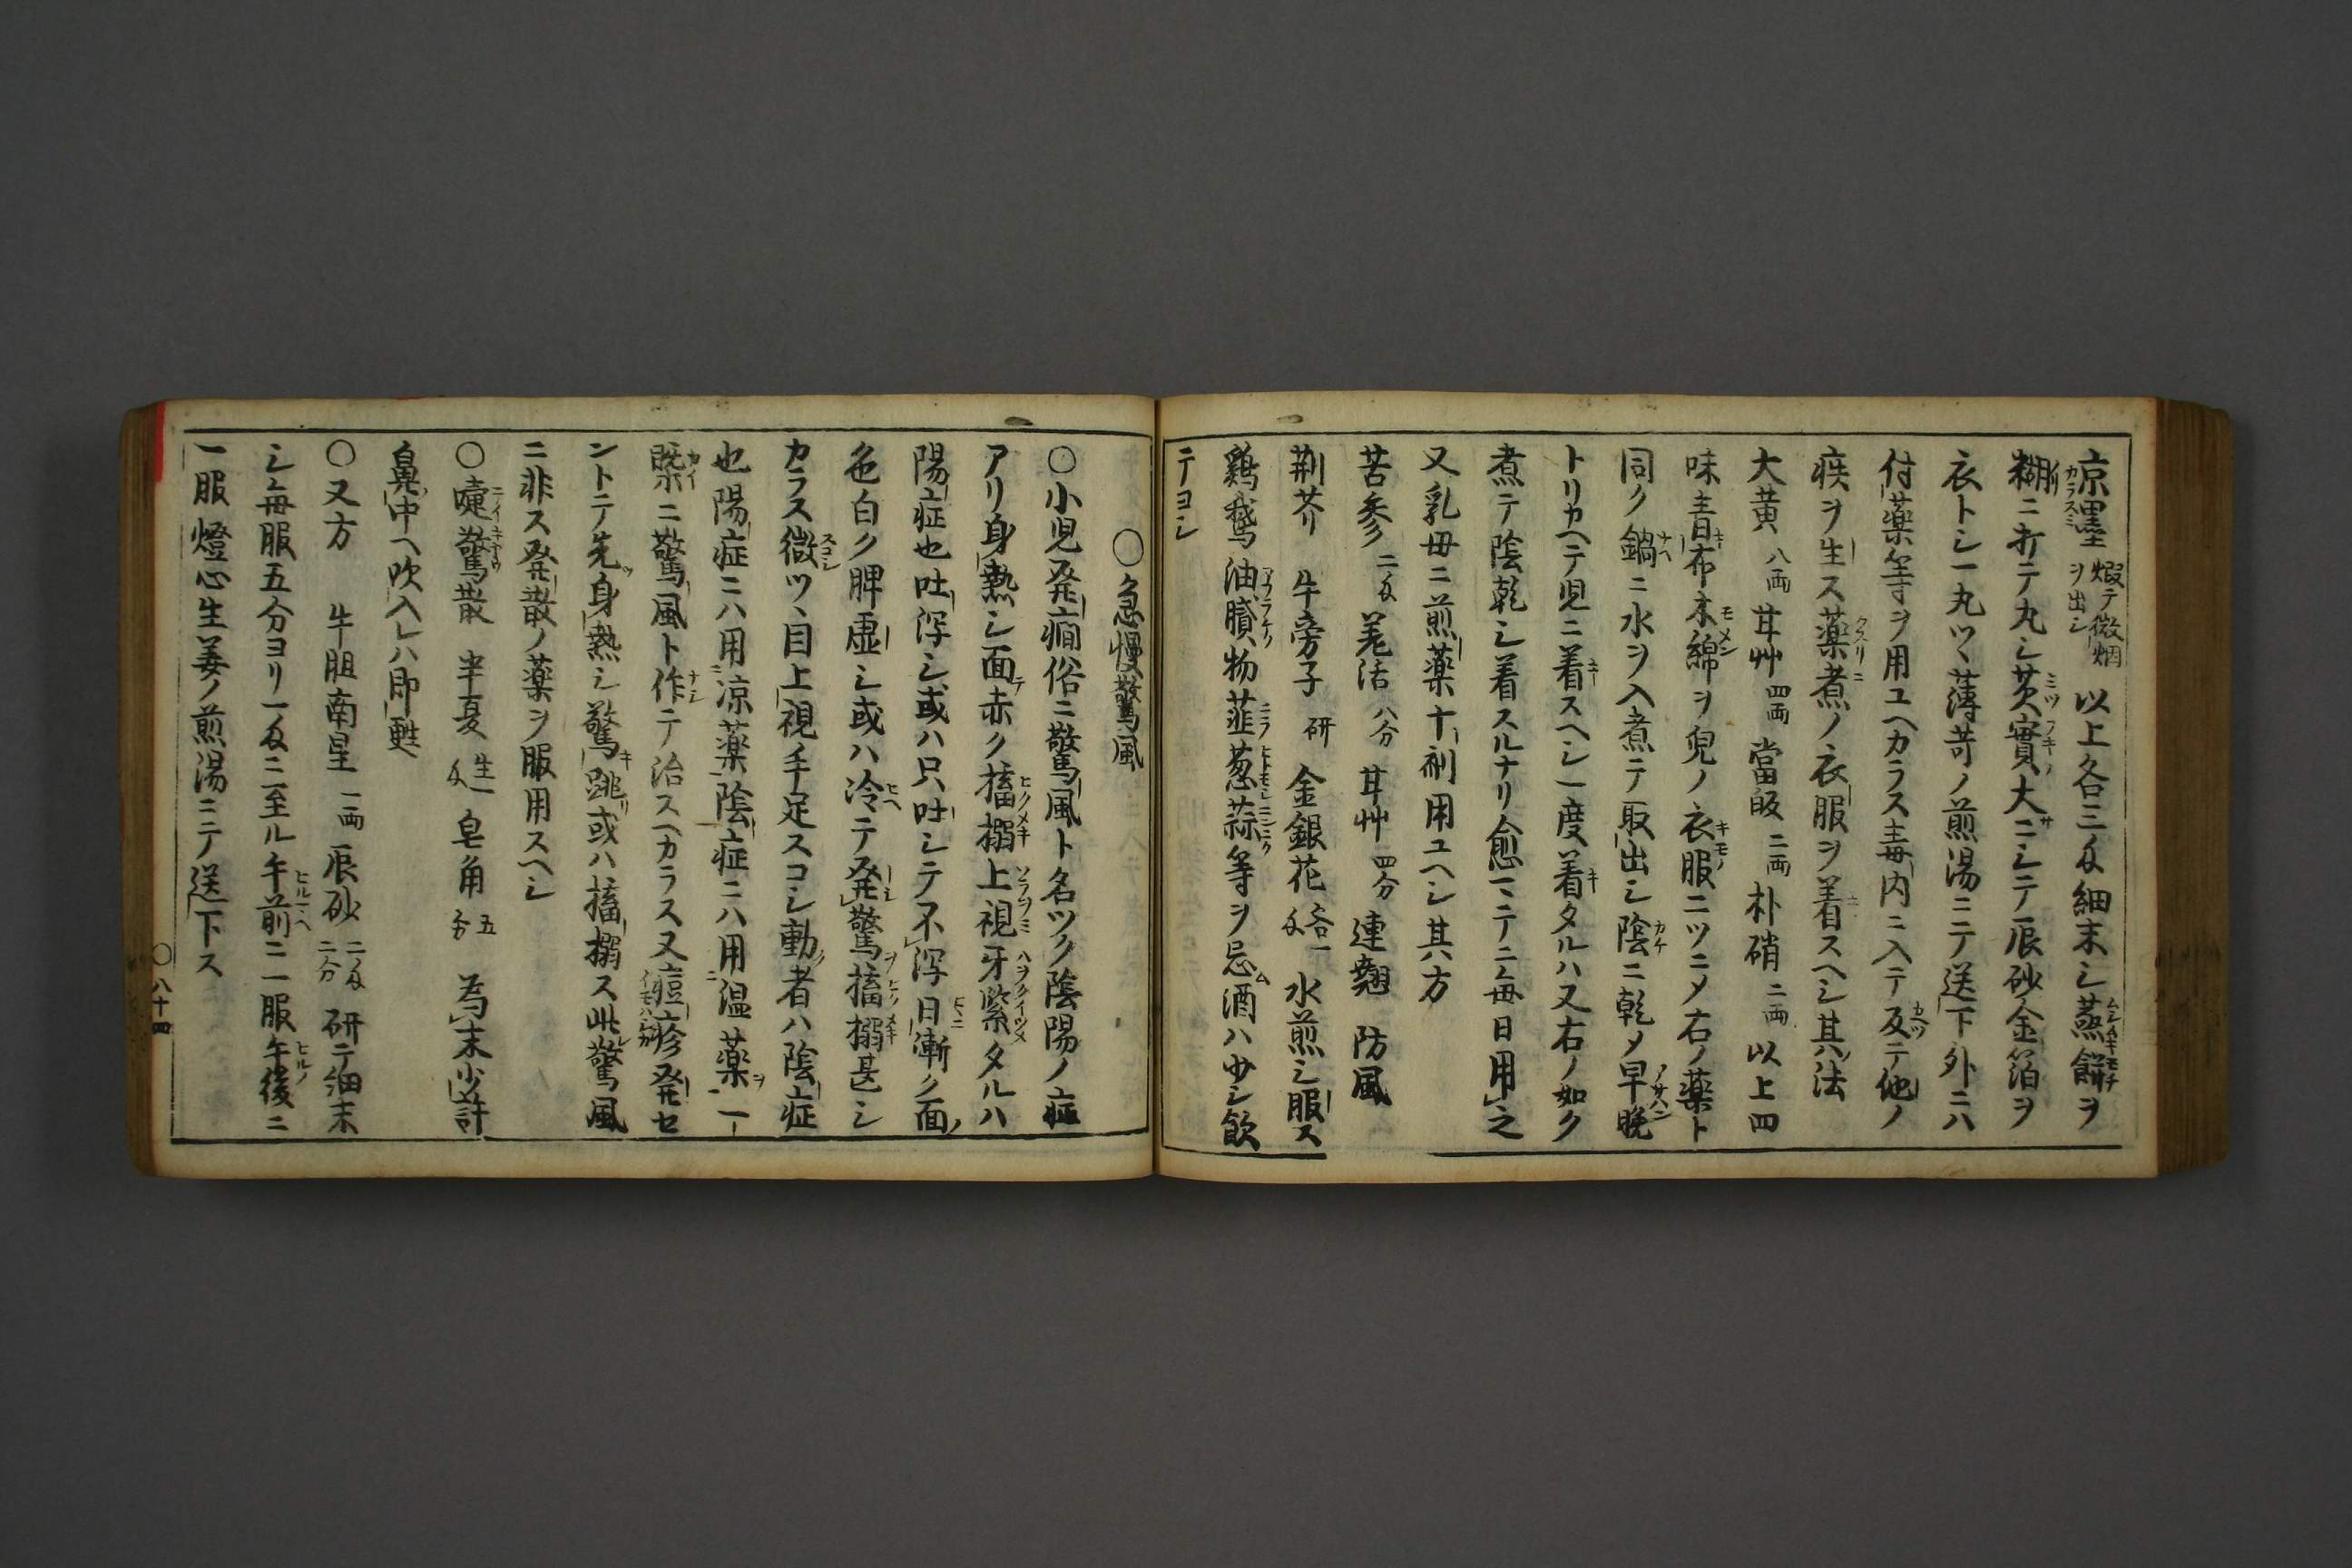 京墨 煆テ微烟ヲ出シ 以上各三匁細末シ蒸餅ヲ
糊ニ打テ丸シ芡實大ニシテ辰砂金箔ヲ
衣トシ一丸ツヽ薄苛ノ煎湯ニテ送下外ニハ
付薬等ヲ用ユヘカラス毒内ニ入テ反テ他ノ
疾ヲ生ス薬煮ノ衣服ヲ着スヘシ其法
大黄 八両 甘艸 四両 當皈 二両 朴硝 二両 以上四
味青布木綿ヲ兒ノ衣服ニツニメ右ノ薬ト
同ク鍋ニ水ヲ入煮テ取出シ陰ニ乾メ早晩
トリカヘテ児ニ着スヘシ一度着タルハ又右ノ如ク
煮テ陰乾シ着スルナリ愈マテニ毎日用之
又乳母ニ煎薬十剤用ユヘシ其方
苦参 二匁 羌活 八分 甘艸 四分 連翹 防風
荆芥 牛旁子 研 金銀花 各一匁 水煎シ服ス
鶏鵞油膩物韮葱蒜等ヲ忌酒ハ少シ飲
テヨシ
〇急慢驚風
〇小児発癇俗ニ驚風ト名ツク陰陽ノ症
アリ身熱シ面赤ク搐搦上視牙緊タルハ
陽症也吐泻シ或ハ只吐シテ不泻日漸ク面ノ
色白ク脾虚シ或ハ冷テ発驚搐搦甚シ
カラス微ツヽ目上視手足スコシ動者ハ陰症
也陽症ニハ用凉薬陰症ニハ用温薬一
槩ニ驚風ト作テ治スヘカラス又痘疹発セ
ントテ先身熱シ驚跳或ハ搐搦ス此驚風
ニ非ス発散ノ薬ヲ服用スヘシ
〇嚏驚散 半夏 生一匁 皂角 五分 為末少許
鼻中ヘ吹入レハ即甦
〇又方 牛胆南星 一両 辰砂 二匁二分 研テ細末
シ毎服五分ヨリ一匁ニ至ル午前ニ一服午後ニ
一服燈心生姜ノ煎湯ニテ送下ス
〇八十四